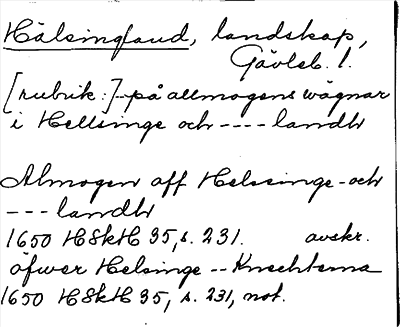 Hälsingland, landskap,
Gävleb. l.
[rubrik:] -- på allmogens wägnar
i Hellsinge och ---- landh
Almogen aff Helsinge- och
--- landh
1650 HSkH 35, s. 231. avskr.
öfwer Helsinge -- Knechterna
1650 HSkH 35, s. 231, not.